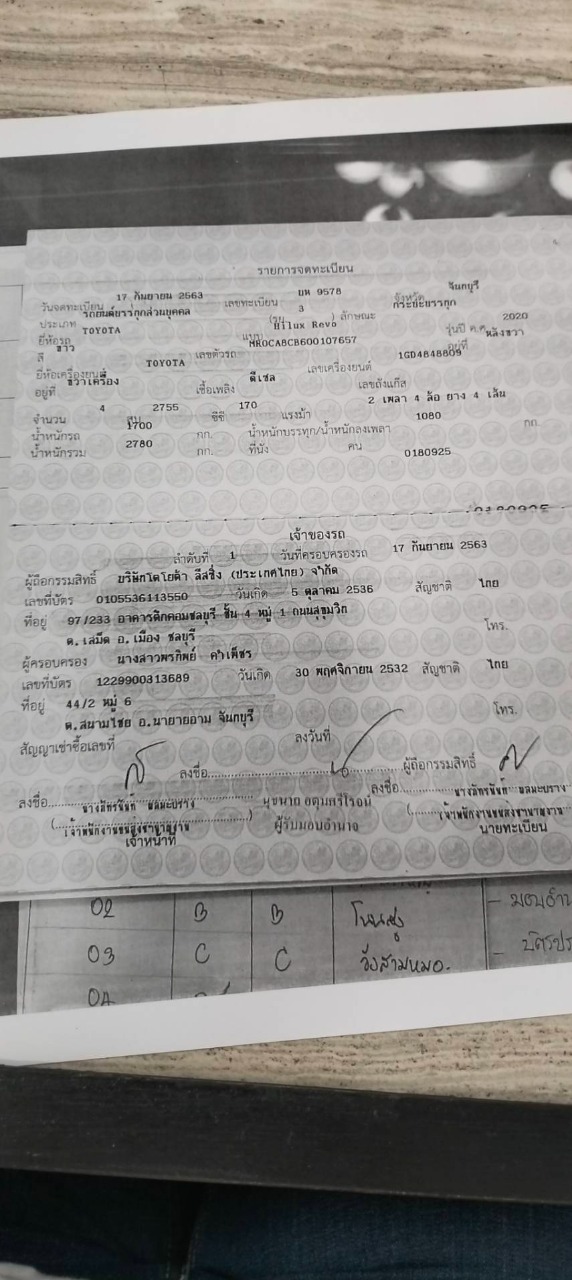 รายการจดทะเบียน
วันจดทะเบียน 17 กันยายน 2563 เลขทะเบียน ยท 9578 จังหวัด จันทบุรี
ประเภท รถยนต์บรรทุกส่วนบุคคล (รย. 3 ) ลักษณะ กระบะบรรทุก
ยี่ห้อรถ TOYOTA แบบ Hilux Revo รุ่นปี ค.ศ. 2020
สี ขาว เลขตัวรถ MR0CA8CB600107657 อยู่ที่ หลังขวา
ยี่ห้อเครื่องยนต์ TOYOTA เลขเครื่องยนต์ 1GD4848809
อยู่ที่ ขวาเครื่อง เชื้อเพลิง ดีเซล เลขถังแก๊ส
จำนวน 4 สูบ 2755 ซีซี 170 แรงม้า 2 เพลา 4 ล้อ ยาง 4 เส้น
น้ำหนักรถ 1700 กก. น้ำหนักบรรทุก/น้ำหนักลงเพลา 1080 กก.
น้ำหนักรวม 2780 กก. ที่นั่ง คน 0180925
เจ้าของรถ
ลำดับที่ 1 วันที่ครอบครองรถ 17 กันยายน 2563
ผู้ถือกรรมสิทธิ์ บริษัทโตโยต้า ลีสซิ่ง (ประเทศไทย) จำกัด
เลขที่บัตร 0105536113550 วันเกิด 5 ตุลาคม 2536 สัญชาติ ไทย
ที่อยู่ 97/233 อาคารตึกคอมชลบุรี ชั้น 4 หมู่ 1 ถนนสุขุมวิท
ต.เสม็ด อ.เมือง ชลบุรี โทร.
ผู้ครอบครอง นางสาวพรทิพย์ คำเพ็ชร
เลขที่บัตร 1229900313689 วันเกิด 30 พฤศจิกายน 2532 สัญชาติ ไทย
ที่อยู่ 44/2 หมู่ 6
ต.สนามไชย อ.นายายอาม จันทบุรี โทร.
สัญญาเช่าซื้อเลขที่ ลงวันที่
ลงชื่อ ผู้ถือกรรมสิทธิ์
ลงชื่อ ลงชื่อ
ผู้รับมอบอำนาจ
เจ้าพนักงานขนส่งชำนาญงาน เจ้าพนักงานขนส่งชำนาญงาน
เจ้าหน้าที่ นายทะเบียน
02 B B โนนสูง
03 C C วังสามหมอ.
04